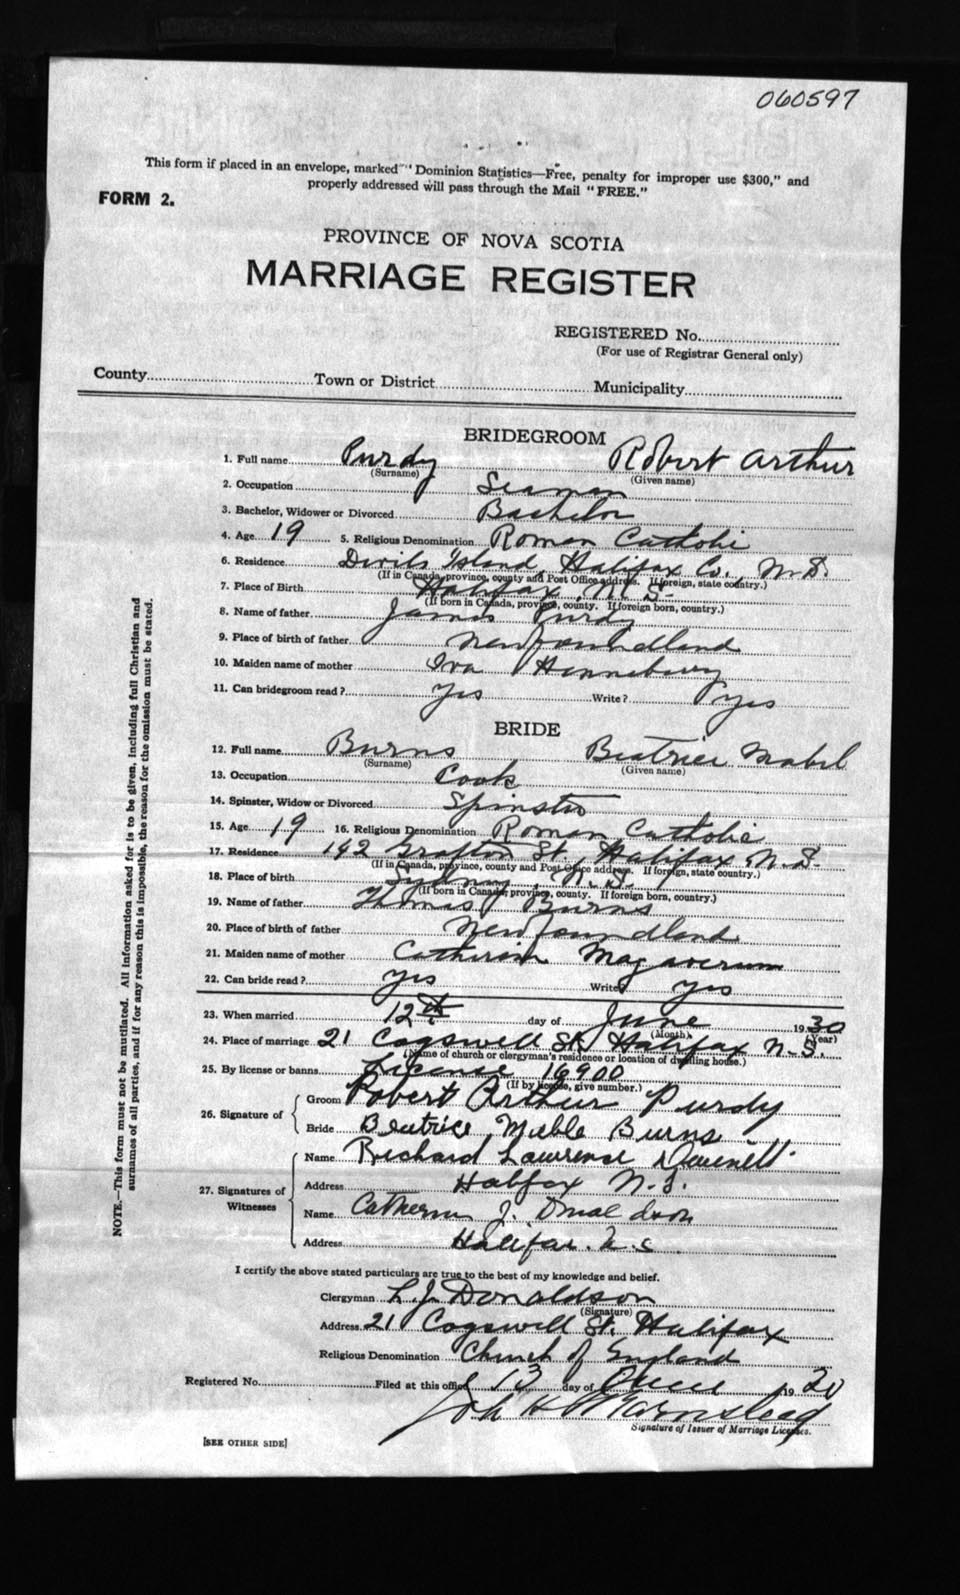 060597
This form if placed in an envelope, marked "Dominion Statistics—Free, penalty for improper use $300," and
properly addressed will pass through the Mail "FREE."
FORM 2.
PROVINCE OF NOVA SCOTIA
MARRIAGE REGISTER
REGISTERED No.
(For use of Registrar General only)
County Town or District Municipality
BRIDEGROOM
1. Full name Purdy Robert Arthur
(Surname) (Given name)
2. Occupation Seaman
3. Bachelor, Widower or Divorced Bachelor
4. Age 19 5. Religious Denomination Roman Catholic
6. Residence Devils Island, Halifax Co., N.S.
(If in Canada, province, county and Post Office address. If foreign, state country.)
7. Place of Birth Halifax, N.S.
(If born in Canada, province, county. If foreign born, country.)
8. Name of father James Purdy
9. Place of birth of father Newfoundland
10. Maiden name of mother Iva Hennebury
11. Can bridegroom read? Yes Write? yes
BRIDE
12. Full name Burns Beatrice Mabel
(Surname) (Given name)
13. Occupation Cook
14. Spinster, Widow or Divorced Spinster
15. Age 19 16. Religious Denomination Roman Catholic
17. Residence 142 Grafton St., Halifax N.S.
(If in Canada, province, county and Post Office address. If foreign, state country.)
18. Place of birth Sidney, N.S.
(If born in Canada, province, county. If foreign born, country.)
19. Name of father Thomas Burns
20. Place of birth of father Newfoundland
21. Maiden name of mother Catherine
22. Can bride read? yes Write? yes
23. When married 12th day of June 1930
(Month) (Year)
24. Place of marriage 21 Cogswell St. Halifax N.S.
(Name of church or clergyman's residence or location of dwelling house.)
25. By license or banns License 16900
(If by license, give number.)
26. Signature of Groom Robert Arthur Purdy
Bride Beatrice Mable Burns
27. Signatures of Witnesses Name Richard Lawrence
Address Halifax N.S.
Name Catherine J. Donaldson
Address Halifax. N.S
I certify the above stated particulars are true to the best of my knowledge and belief.
Clergyman L.J. Donaldson
(Signature)
Address 21 Cogswell St. Halifax
Religious Denomination Church of England
Registered No. Filed at this office 13 day of June 1930
Signature of Issuer of Marriage Licenses.
[SEE OTHER SIDE]
NOTE.—This form must not be mutilated. All information asked for is to be given, including full Christian and
surnames of all parties, and if for any reason this is impossible, the reason for the omission must be stated.